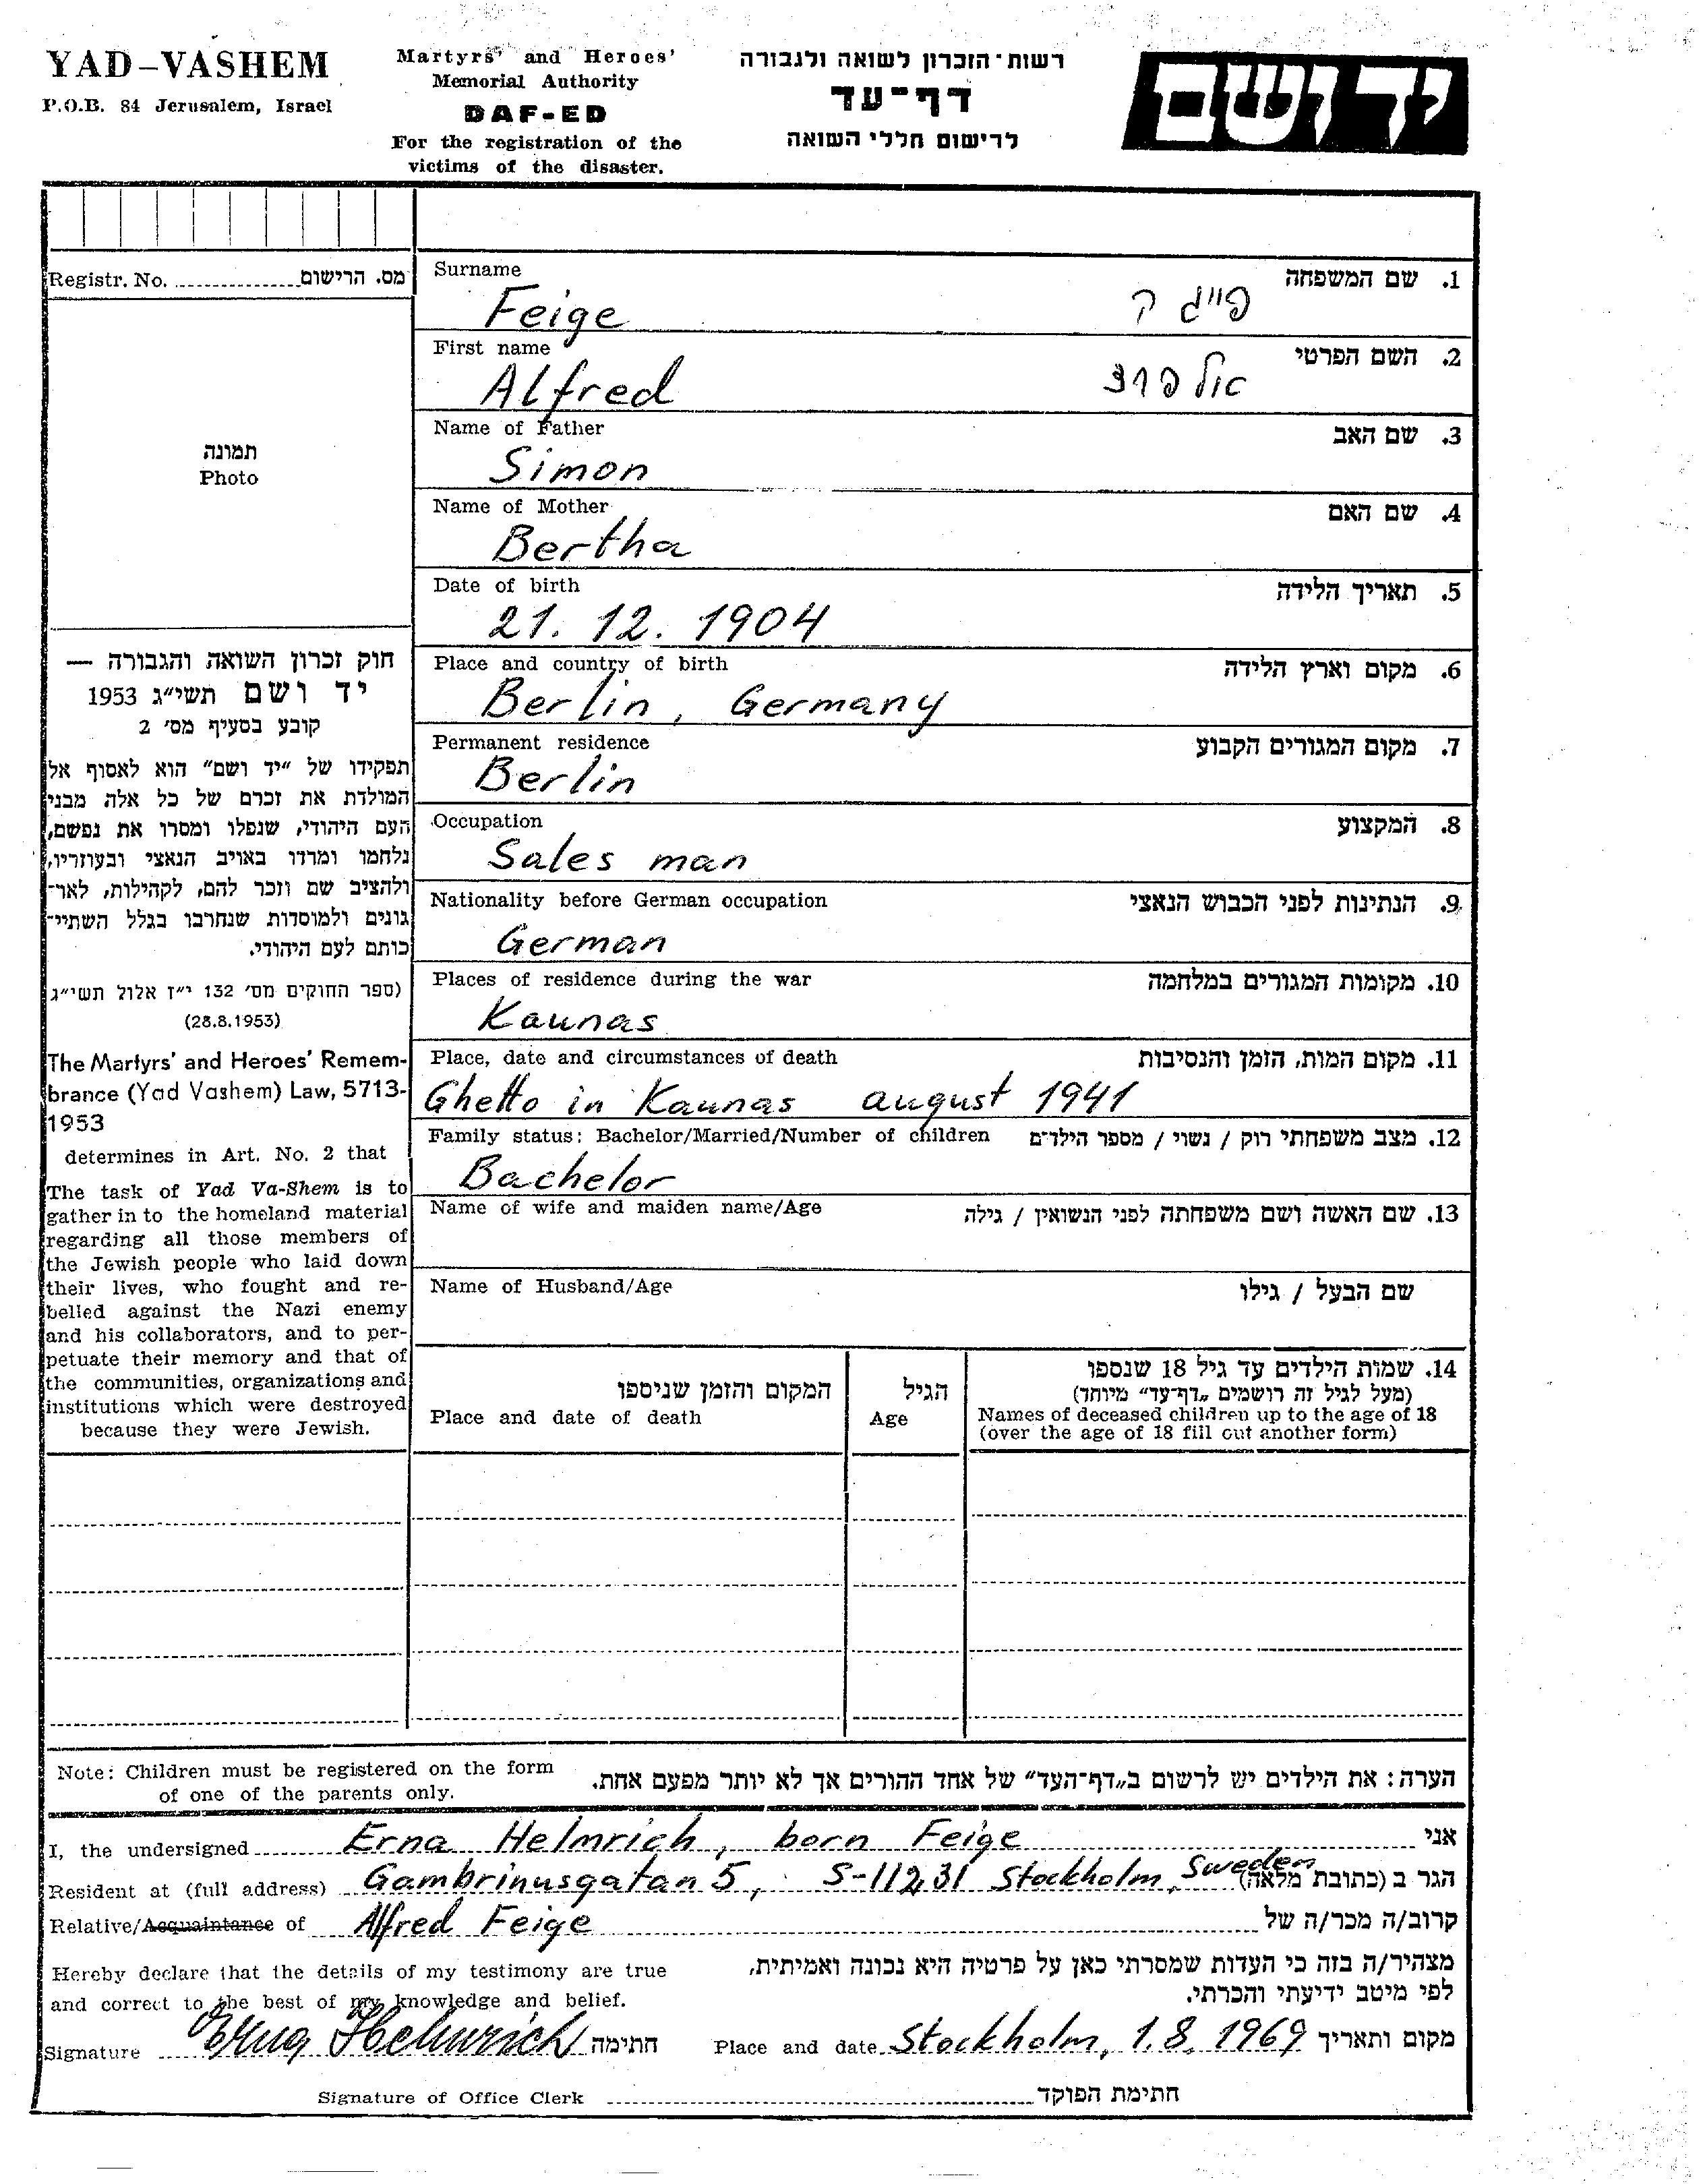 YAD-VASHEM
P.O.B. 84 Jerusalem, Israel
Martyrs' and Heroes'
Memorial Authority
DAF-ED
For the registration of the
victims of the disaster.
רשות־הזכרון לשואה ולגבורה
דף־עד
לרישום חללי השואה
יד ושם
Registr. No. מס. הרישום
תמונה
Photo
חוק זכרון השואה והגבורה —
יד ושם תשי״ג 1953
קובע בסעיף מס׳ 2
תפקידו של ״יד ושם״ הוא לאסוף אל
המולדת את זכרם של כל אלה מבני
העם היהודי, שנפלו ומסרו את נפשם,
נלחמו ומרדו באויב הנאצי ובעוזריו,
ולהציב שם וזכר להם, לקהילות, לאר־
גונים ולמוסדות שנחרבו בגלל השתיי־
כותם לעם היהודי.
(ספר החוקים מס׳ 132 י״ז אלול תשי״ג
(28.8.1953)
The Martyrs' and Heroes' Remem-
brance (Yad Vashem) Law, 5713-
1953
determines in Art. No. 2 that
The task of Yad Va-Shem is to
gather in to the homeland material
regarding all those members of
the Jewish people who laid down
their lives, who fought and re-
belled against the Nazi enemy
and his collaborators, and to per-
petuate their memory and that of
the communities, organizations and
institutions which were destroyed
because they were Jewish.
Surname 1. שם המשפחה
Feige פייג ק
First name 2. השם הפרטי
Alfred אלפרד
Name of Father 3. שם האב
Simon
Name of Mother 4. שם האם
Bertha
Date of birth 5. תאריך הלידה
21. 12. 1904
Place and country of birth 6. מקום וארץ הלידה
Berlin, Germany
Permanent residence 7. מקום המגורים הקבוע
Berlin
Occupation 8. המקצוע
Sales man
Nationality before German occupation 9. הנתינות לפני הכבוש הנאצי
German
Places of residence during the war 10. מקומות המגורים במלחמה
Kaunas
Place, date and circumstances of death 11. מקום המות, הזמן והנסיבות
Ghetto in Kaunas august 1941
Family status: Bachelor/Married/Number of children 12. מצב משפחתי רוק / נשוי / מספר הילדים
Bachelor
Name of wife and maiden name/Age 13. שם האשה ושם משפחתה לפני הנשואין / גילה
Name of Husband/Age שם הבעל / גילו
14. שמות הילדים עד גיל 18 שנספו
(מעל לגיל זה רושמים „דף־עד״ מיוחד)
Names of deceased children up to the age of 18
(over the age of 18 fill out another form)
הגיל
Age
המקום והזמן שניספו
Place and date of death
Note: Children must be registered on the form
of one of the parents only.
הערה: את הילדים יש לרשום ב„דף־העד״ של אחד ההורים אך לא יותר מפעם אחת.
I, the undersigned Erna Helmrich, born Feige אני
Resident at (full address) Gambrinusgatan 5, S-11231 Stockholm, Sweden הגר ב (כתובת מלאה)
Relative/Acquaintance of Alfred Feige קרוב/ה מכר/ה של
Hereby declare that the details of my testimony are true
and correct to the best of my knowledge and belief.
מצהיר/ה בזה כי העדות שמסרתי כאן על פרטיה היא נכונה ואמיתית,
לפי מיטב ידיעתי והכרתי.
Signature Erna Helmrich חתימה Place and date Stockholm, 1.8.1969 מקום ותאריך
Signature of Office Clerk חתימת הפוקד